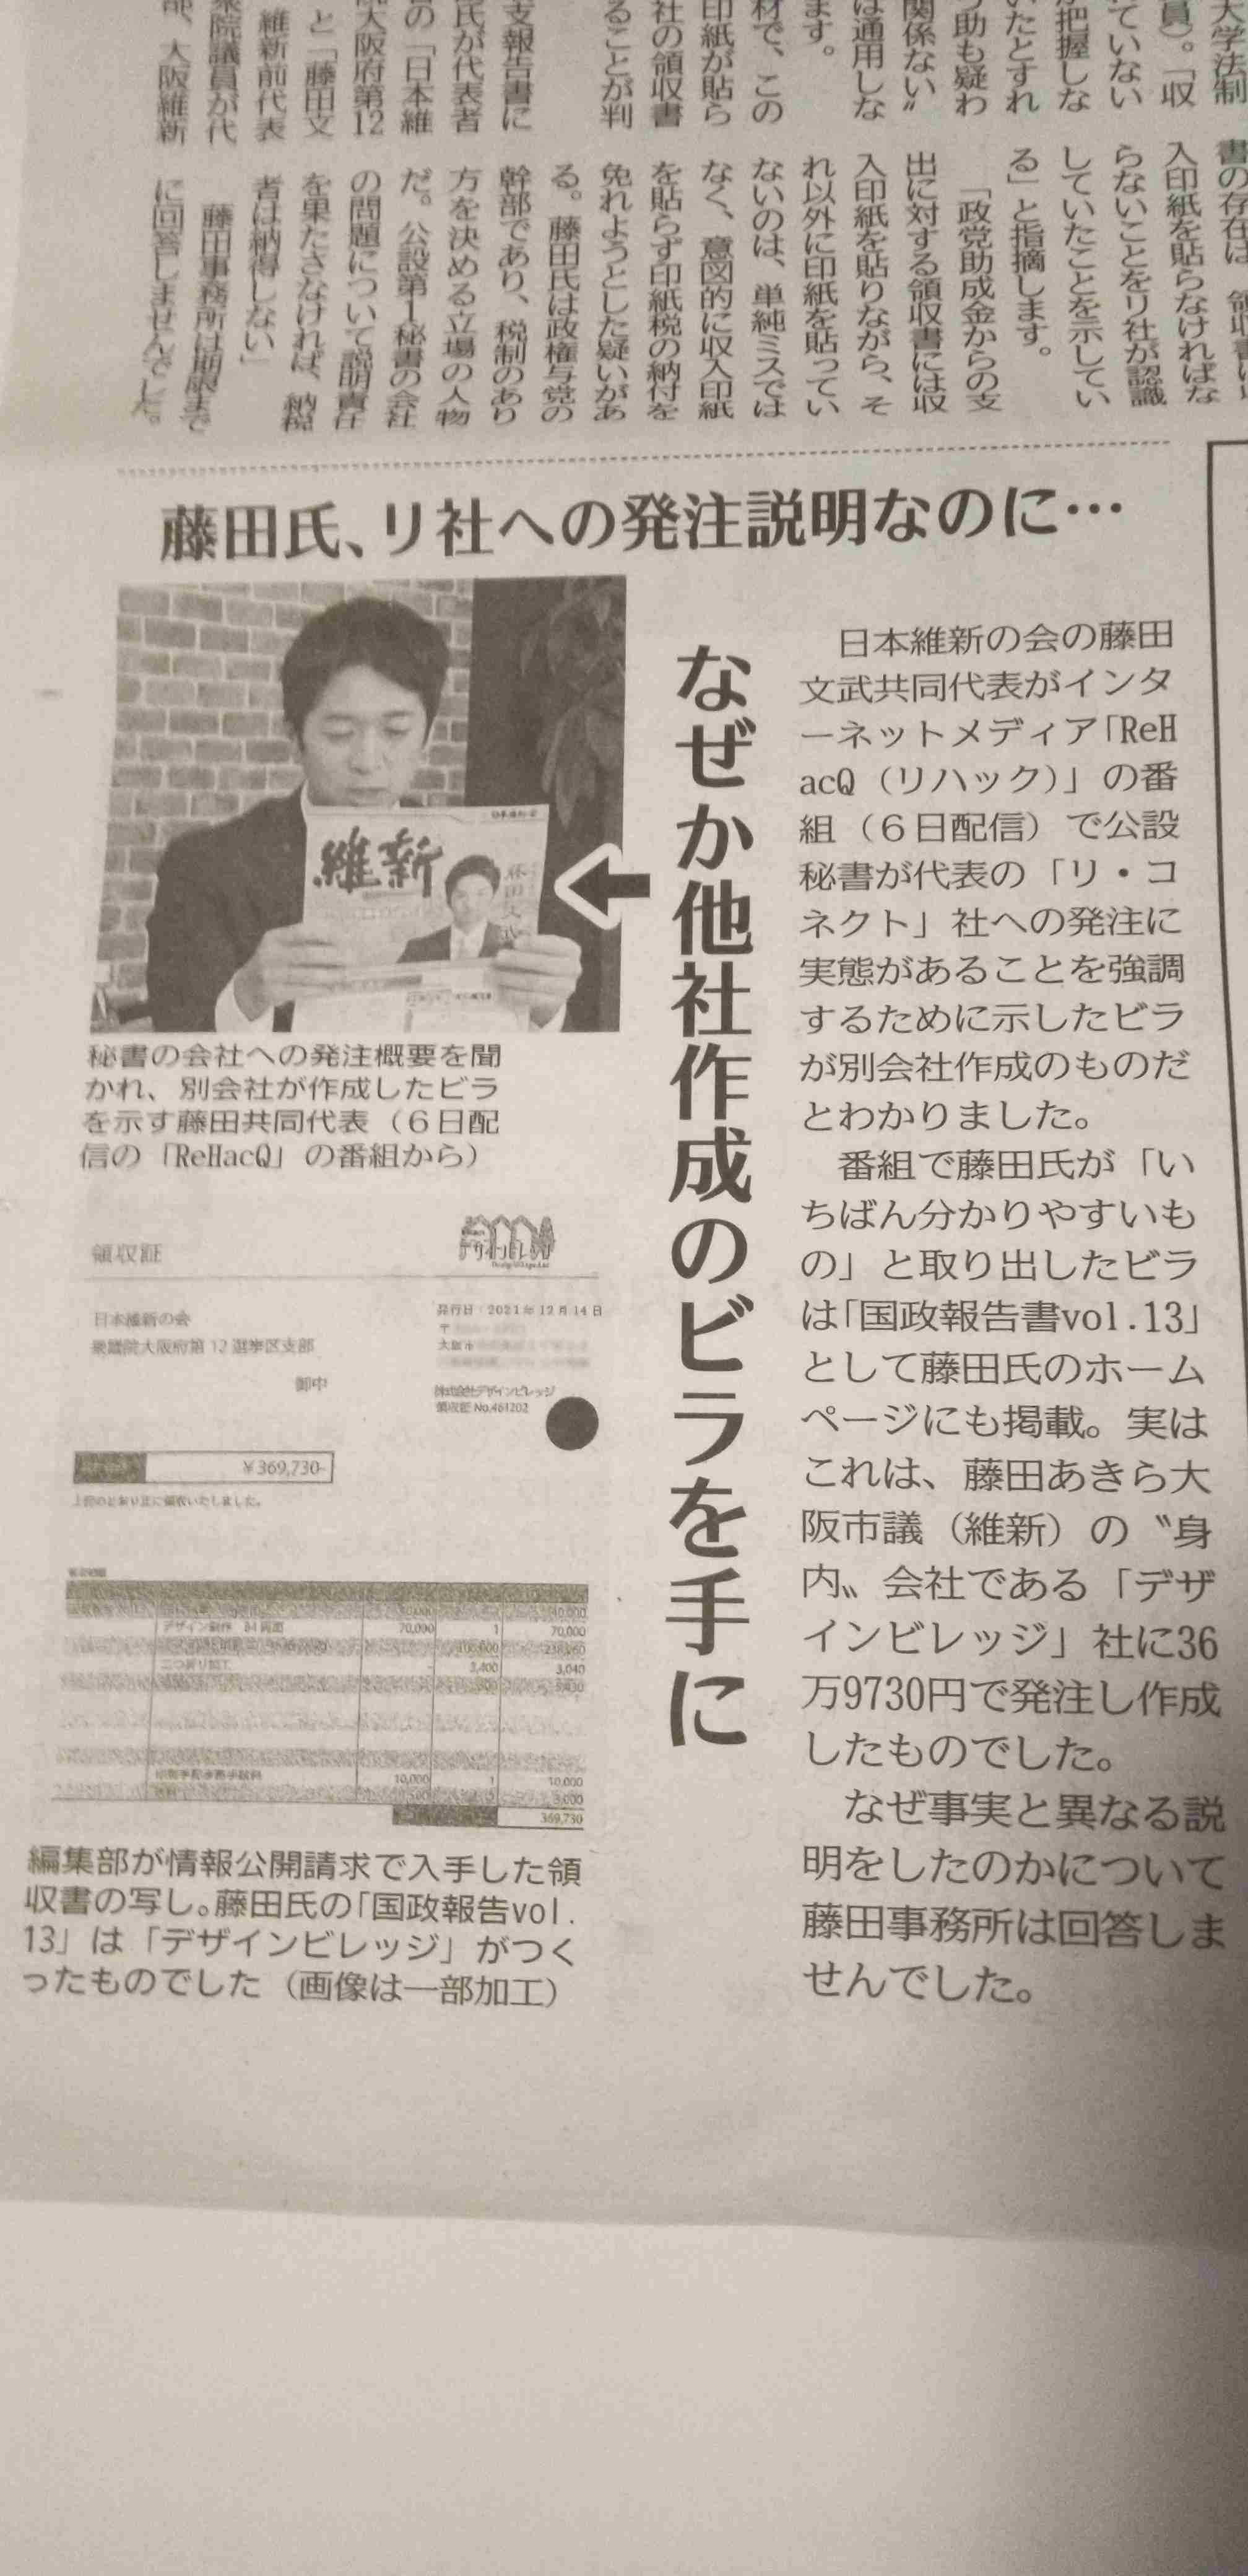 大学法制
員)。「収
ていない
が把握しな
いたとすれ
助も疑わ
関係ない〟
は通用しな
ます。
材で、この
印紙が貼ら
社の領収書
ることが判
支報告書に
氏が代表者
の「日本維
大阪府第12
と「藤田文
維新前代表
衆院議員が代
部、大阪維新
書の存在は、領収書に
入印紙を貼らなければな
らないことをリ社が認識
していたことを示してい
る」と指摘します。
「政党助成金からの支
出に対する領収書には収
入印紙を貼りながら、そ
れ以外に印紙を貼ってい
ないのは、単純ミスでは
なく、意図的に収入印紙
を貼らず印紙税の納付を
免れようとした疑いがあ
る。藤田氏は政権与党の
幹部であり、税制のあり
方を決める立場の人物
だ。公設第1秘書の会社
の問題について説明責任
を果たさなければ、納税
者は納得しない」
藤田事務所は期限まで
に回答しませんでした。
藤田氏、リ社への発注説明なのに…
なぜか他社作成のビラを手に
日本維新の会の藤田
文武共同代表がインタ
ーネットメディア「ReH
acQ(リハック)」の番
組(6日配信)で公設
秘書が代表の「リ・コ
ネクト」社への発注に
実態があることを強調
するために示したビラ
が別会社作成のものだ
とわかりました。
番組で藤田氏が「い
ちばん分かりやすいも
の」と取り出したビラ
は「国政報告書vol.13」
として藤田氏のホーム
ページにも掲載。実は
これは、藤田あきら大
阪市議(維新)の〝身
内〟会社である「デザ
インビレッジ」社に36
万9730円で発注し作成
したものでした。
なぜ事実と異なる説
明をしたのかについて
藤田事務所は回答しま
せんでした。
維新
藤田文武
秘書の会社への発注概要を聞
かれ、別会社が作成したビラ
を示す藤田共同代表(6日配
信の「ReHacQ」の番組から)
領収証
デザインビレッジ
日本維新の会
衆議院大阪府第12選挙区支部
御中
発行日:2021年12月14日
〒
大阪市
株式会社デザインビレッジ
領収証No.461202
¥369,730-
上記のとおり正に領収いたしました。
デザイン制作 B4両面 70,000 1 70,000
二つ折り加工 3,040
10,000 1 10,000
369,730
編集部が情報公開請求で入手した領
収書の写し。藤田氏の「国政報告vol.
13」は「デザインビレッジ」がつく
ったものでした(画像は一部加工)